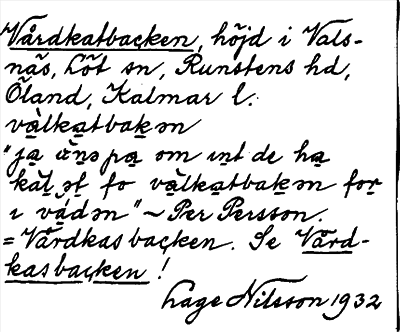 Vårdkatbacken, höjd i Vals-
näs, Löt sn, Runstens hd,
Öland, Kalmar l.
vàlkatbakən
"ja ə̀nspa om int de ha
kàl̥ət fo vàlkatbakən for
i vádən" ~ Per Persson.
= Vårdkasbacken. Se Vård-
kasbacken!
Lage Nilsson 1932